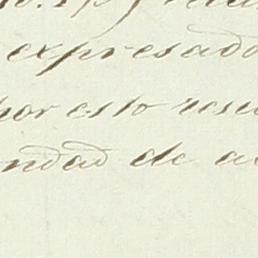 expresado
por esto resu
ndad de a